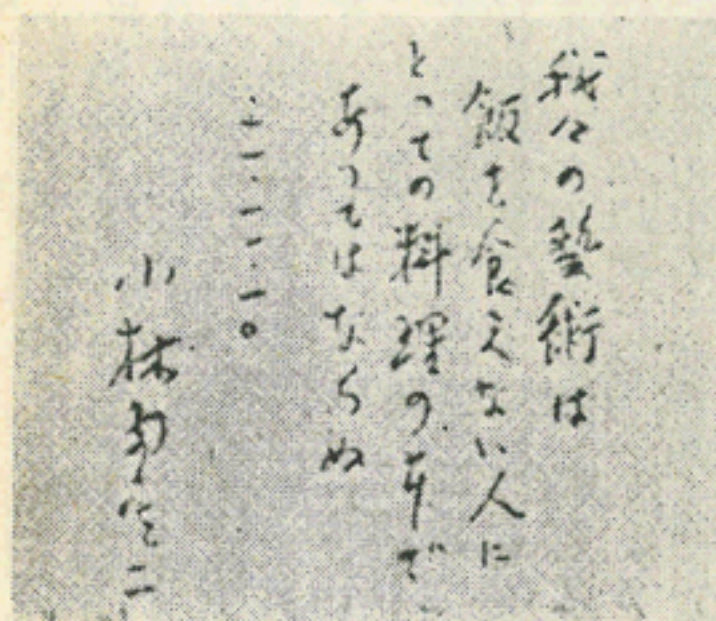 我々の藝術は
飯を食えない人に
とっての料理の本で
あってはならぬ
・一一・一一・一〇
小林多喜二